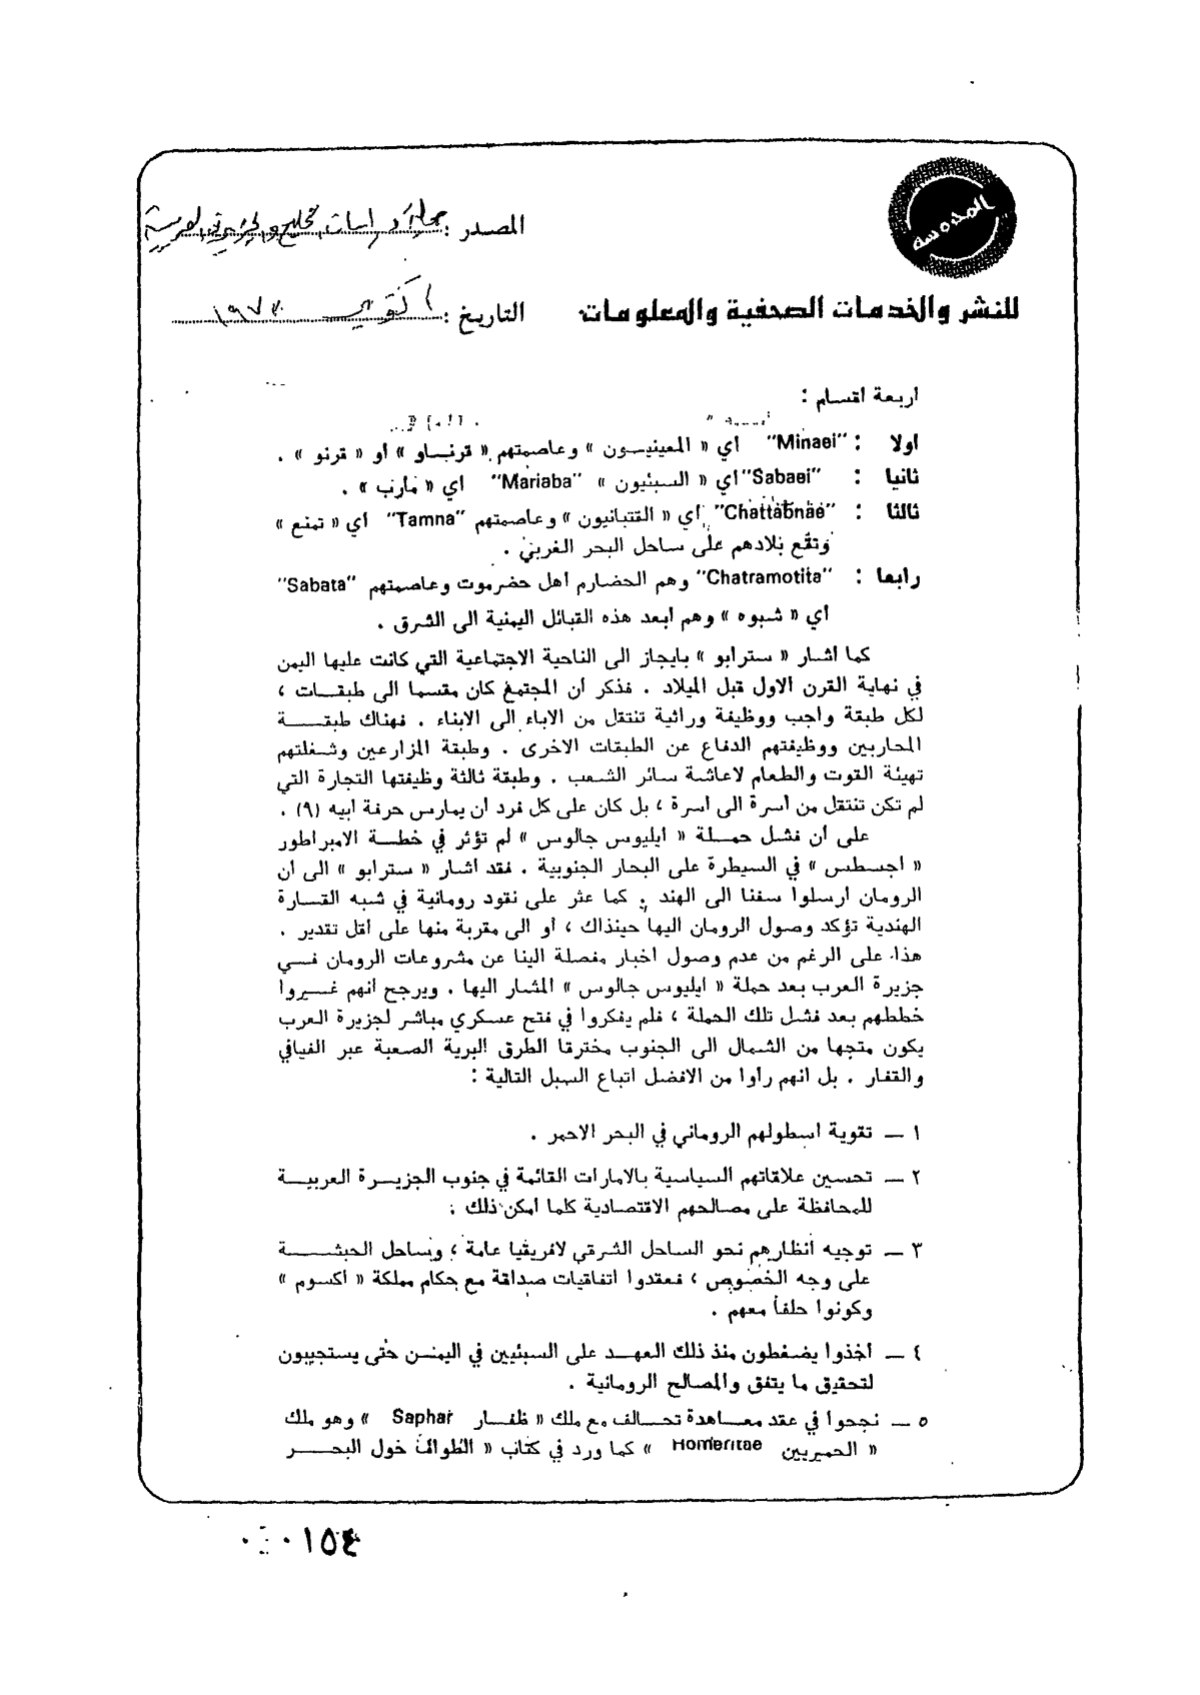 المحروسة
المصدر : مجلة دراسات الخليج والجزيرة العربية
للنشر والخدمات الصحفية والمعلومات
التاريخ : اكتوبر
اربعة اقسام :
اولا : "Minaei" اي « المعينيـون » وعاصمتهم « قرنـاو » أو « قرنو » .
ثانيا : "Sabaei" اي « السبئيون » "Mariaba" اي « مأرب » .
ثالثا : "Chattabnae" اي « القتبانيون » وعاصمتهم "Tamna" اي « تمنع »
وتقع بلادهم على ساحل البحر الغربي .
رابعا : "Chatramotita" وهم الحضارم اهل حضرموت وعاصمتهم "Sabata"
اي « شبوه » وهم ابعد هذه القبائل اليمنية الى الشرق .
كما اشار « سترابو » بايجاز الى الناحية الاجتماعية التي كانت عليها اليمن
في نهاية القرن الاول قبل الميلاد . فذكر ان المجتمع كان مقسما الى طبقات ،
لكل طبقة واجب ووظيفة وراثية تنتقل من الاباء الى الابناء . فهناك طبقـــة
المحاربين ووظيفتهم الدفاع عن الطبقات الاخرى . وطبقة المزارعين وشغلتهم
تهيئة القوت والطعام لاعاشة سائر الشعب . وطبقة ثالثة وظيفتها التجارة التي
لم تكن تنتقل من أسرة الى اسرة ، بل كان على كل فرد أن يمارس حرفة أبيه (٩) .
على أن فشل حمـلة « ايليوس جالوس » لم تؤثر في خطـة الامبراطور
« اجسطس » في السيطرة على البحار الجنوبية . فقد أشار « سترابو » الى ان
الرومان ارسلوا سفنا الى الهند . كما عثر على نقود رومانية في شبه القـارة
الهندية تؤكد وصول الرومان اليها حينذاك ، أو الى مقربة منها على أقل تقدير .
هذا على الرغم من عدم وصول اخبار مفصلة الينا عن مشروعات الرومان فـي
جزيرة العرب بعد حملة « ايليوس جالوس » المشار اليها . ويرجح انهم غـيروا
خططهم بعد فشل تلك الحملة ، فلم يفكروا في فتح عسكري مباشر لجزيرة العرب
يكون متجها من الشمال الى الجنوب مخترقا الطرق البرية الصعبة عبر الفيافي
والقفار . بل انهم رأوا من الافضل اتباع السبل التالية :
١ ــ تقوية اسطولهم الروماني في البحر الاحمر .
٢ ــ تحسين علاقاتهم السياسية بالامارات القائمة في جنوب الجزيـرة العربيـة
للمحافظة على مصالحهم الاقتصادية كلما أمكن ذلك ،
٣ ــ توجيه أنظارهم نحو الساحل الشرقي لافريقيا عامة ، وساحل الحبشـــة
على وجه الخصوص ، فعقدوا اتفاقيات صداقة مع حكام مملكة « أكسوم »
وكونوا حلفا معهم .
٤ ــ أخذوا يضغطون منذ ذلك العهـد على السبئيين في اليمـن حتى يستجيبون
لتحقيق ما يتفق والمصالح الرومانية .
٥ ــ نجحوا في عقد معـاهدة تحـالف مع ملك « ظفـار Saphar » وهو ملك
« الحميريين Homeritae » كما ورد في كتاب « الطواف حول البحـــر